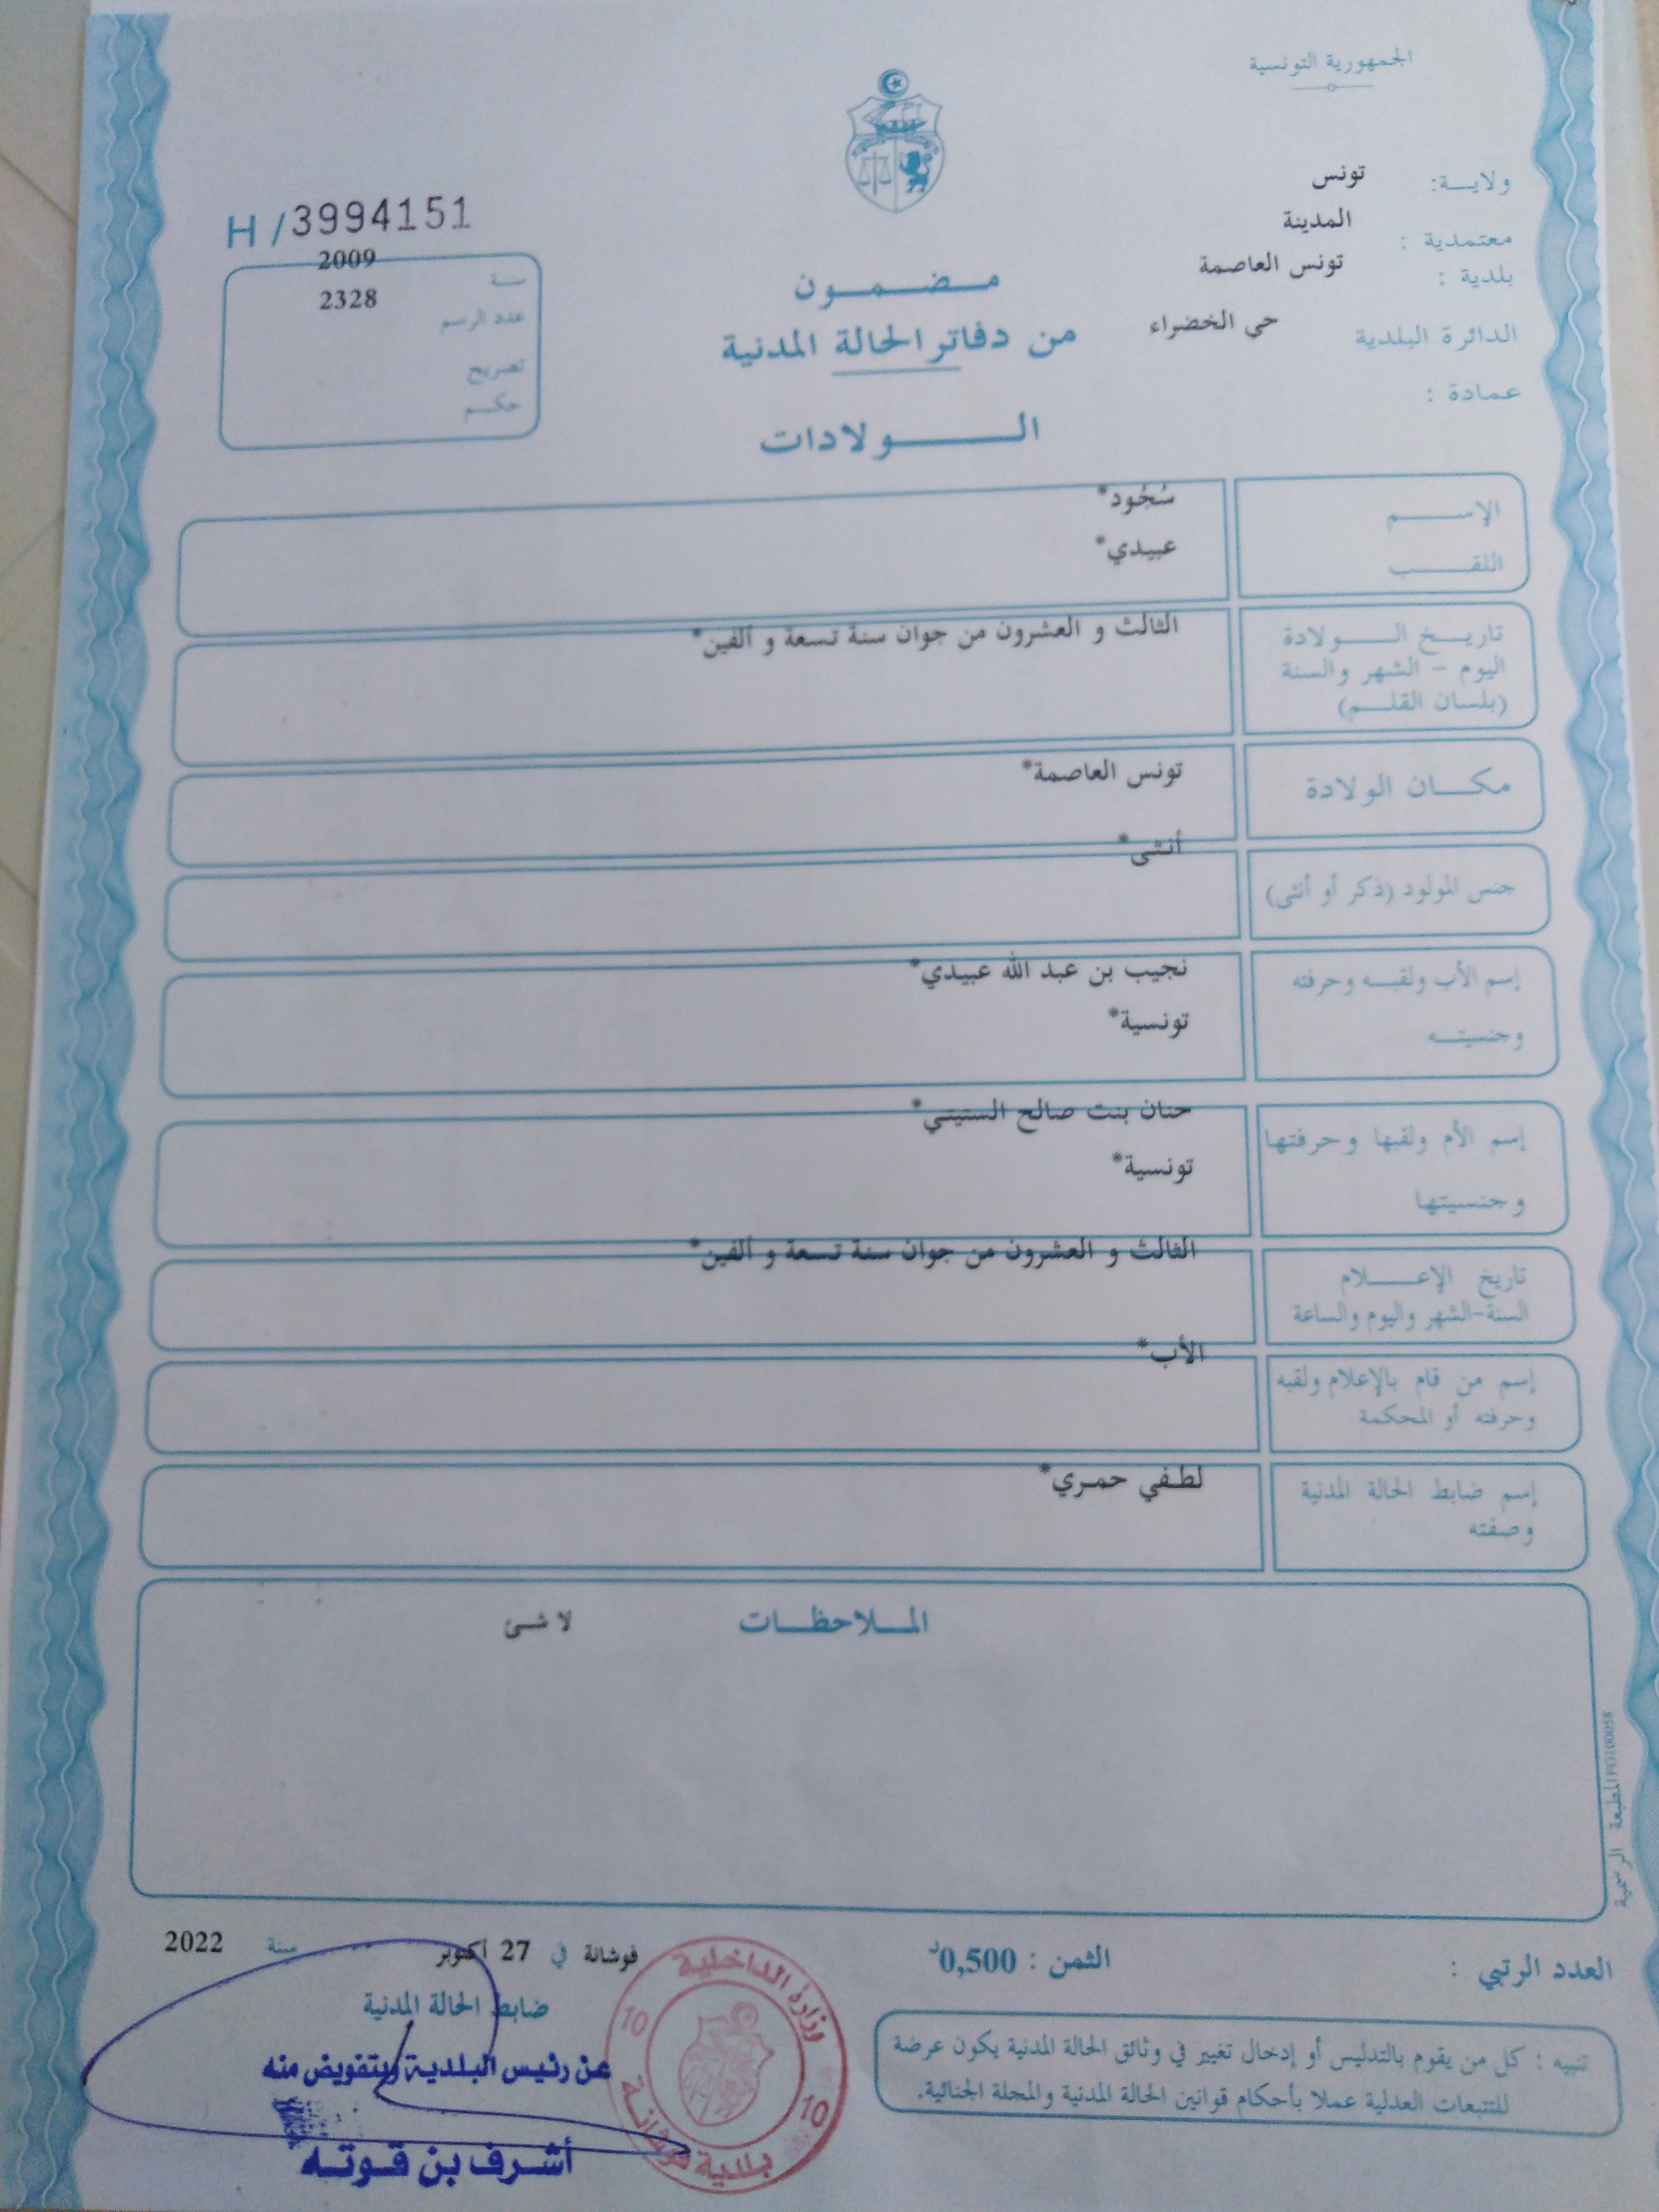 الجمهورية التونسية
ولايــة: تونس
معتمدية : المدينة
بلدية : تونس العاصمة
الدائرة البلدية حي الخضراء
عمادة :
H/3994151
سنة 2009
عدد الرسم 2328
تصريح
حكم
مضمون
من دفاتر الحالة المدنية
الولادات
الإسم سُجُود*
اللقب عبيدي*
تاريخ الولادة الثالث و العشرون من جوان سنة تسعة و ألفين*
اليوم – الشهر والسنة
(بلسان القلم)
مكان الولادة تونس العاصمة*
جنس المولود (ذكر أو أنثى) أنثى*
إسم الأب ولقبه وحرفته نجيب بن عبد الله عبيدي*
وجنسيته تونسية*
إسم الأم ولقبها وحرفتها حنان بنت صالح الستيتي*
وجنسيتها تونسية*
تاريخ الإعلام الثالث و العشرون من جوان سنة تسعة و ألفين*
السنة-الشهر واليوم والساعة
إسم من قام بالإعلام ولقبه الأب*
وحرفته أو المحكمة
إسم ضابط الحالة المدنية لطفي حمري*
وصفته
الملاحظات لا شئ
المطبعة الرسمية
العدد الرتبي :
الثمن : 0,500د
فوشانة في 27 أكتوبر سنة 2022
ضابط الحالة المدنية
عن رئيس البلدية وبتفويض منه
أشرف بن قوته
وزارة الداخلية
10 10
بلدية فوشانة
تنبيه : كل من يقوم بالتدليس أو إدخال تغيير في وثائق الحالة المدنية يكون عرضة
للتتبعات العدلية عملا بأحكام قوانين الحالة المدنية والمجلة الجنائية.